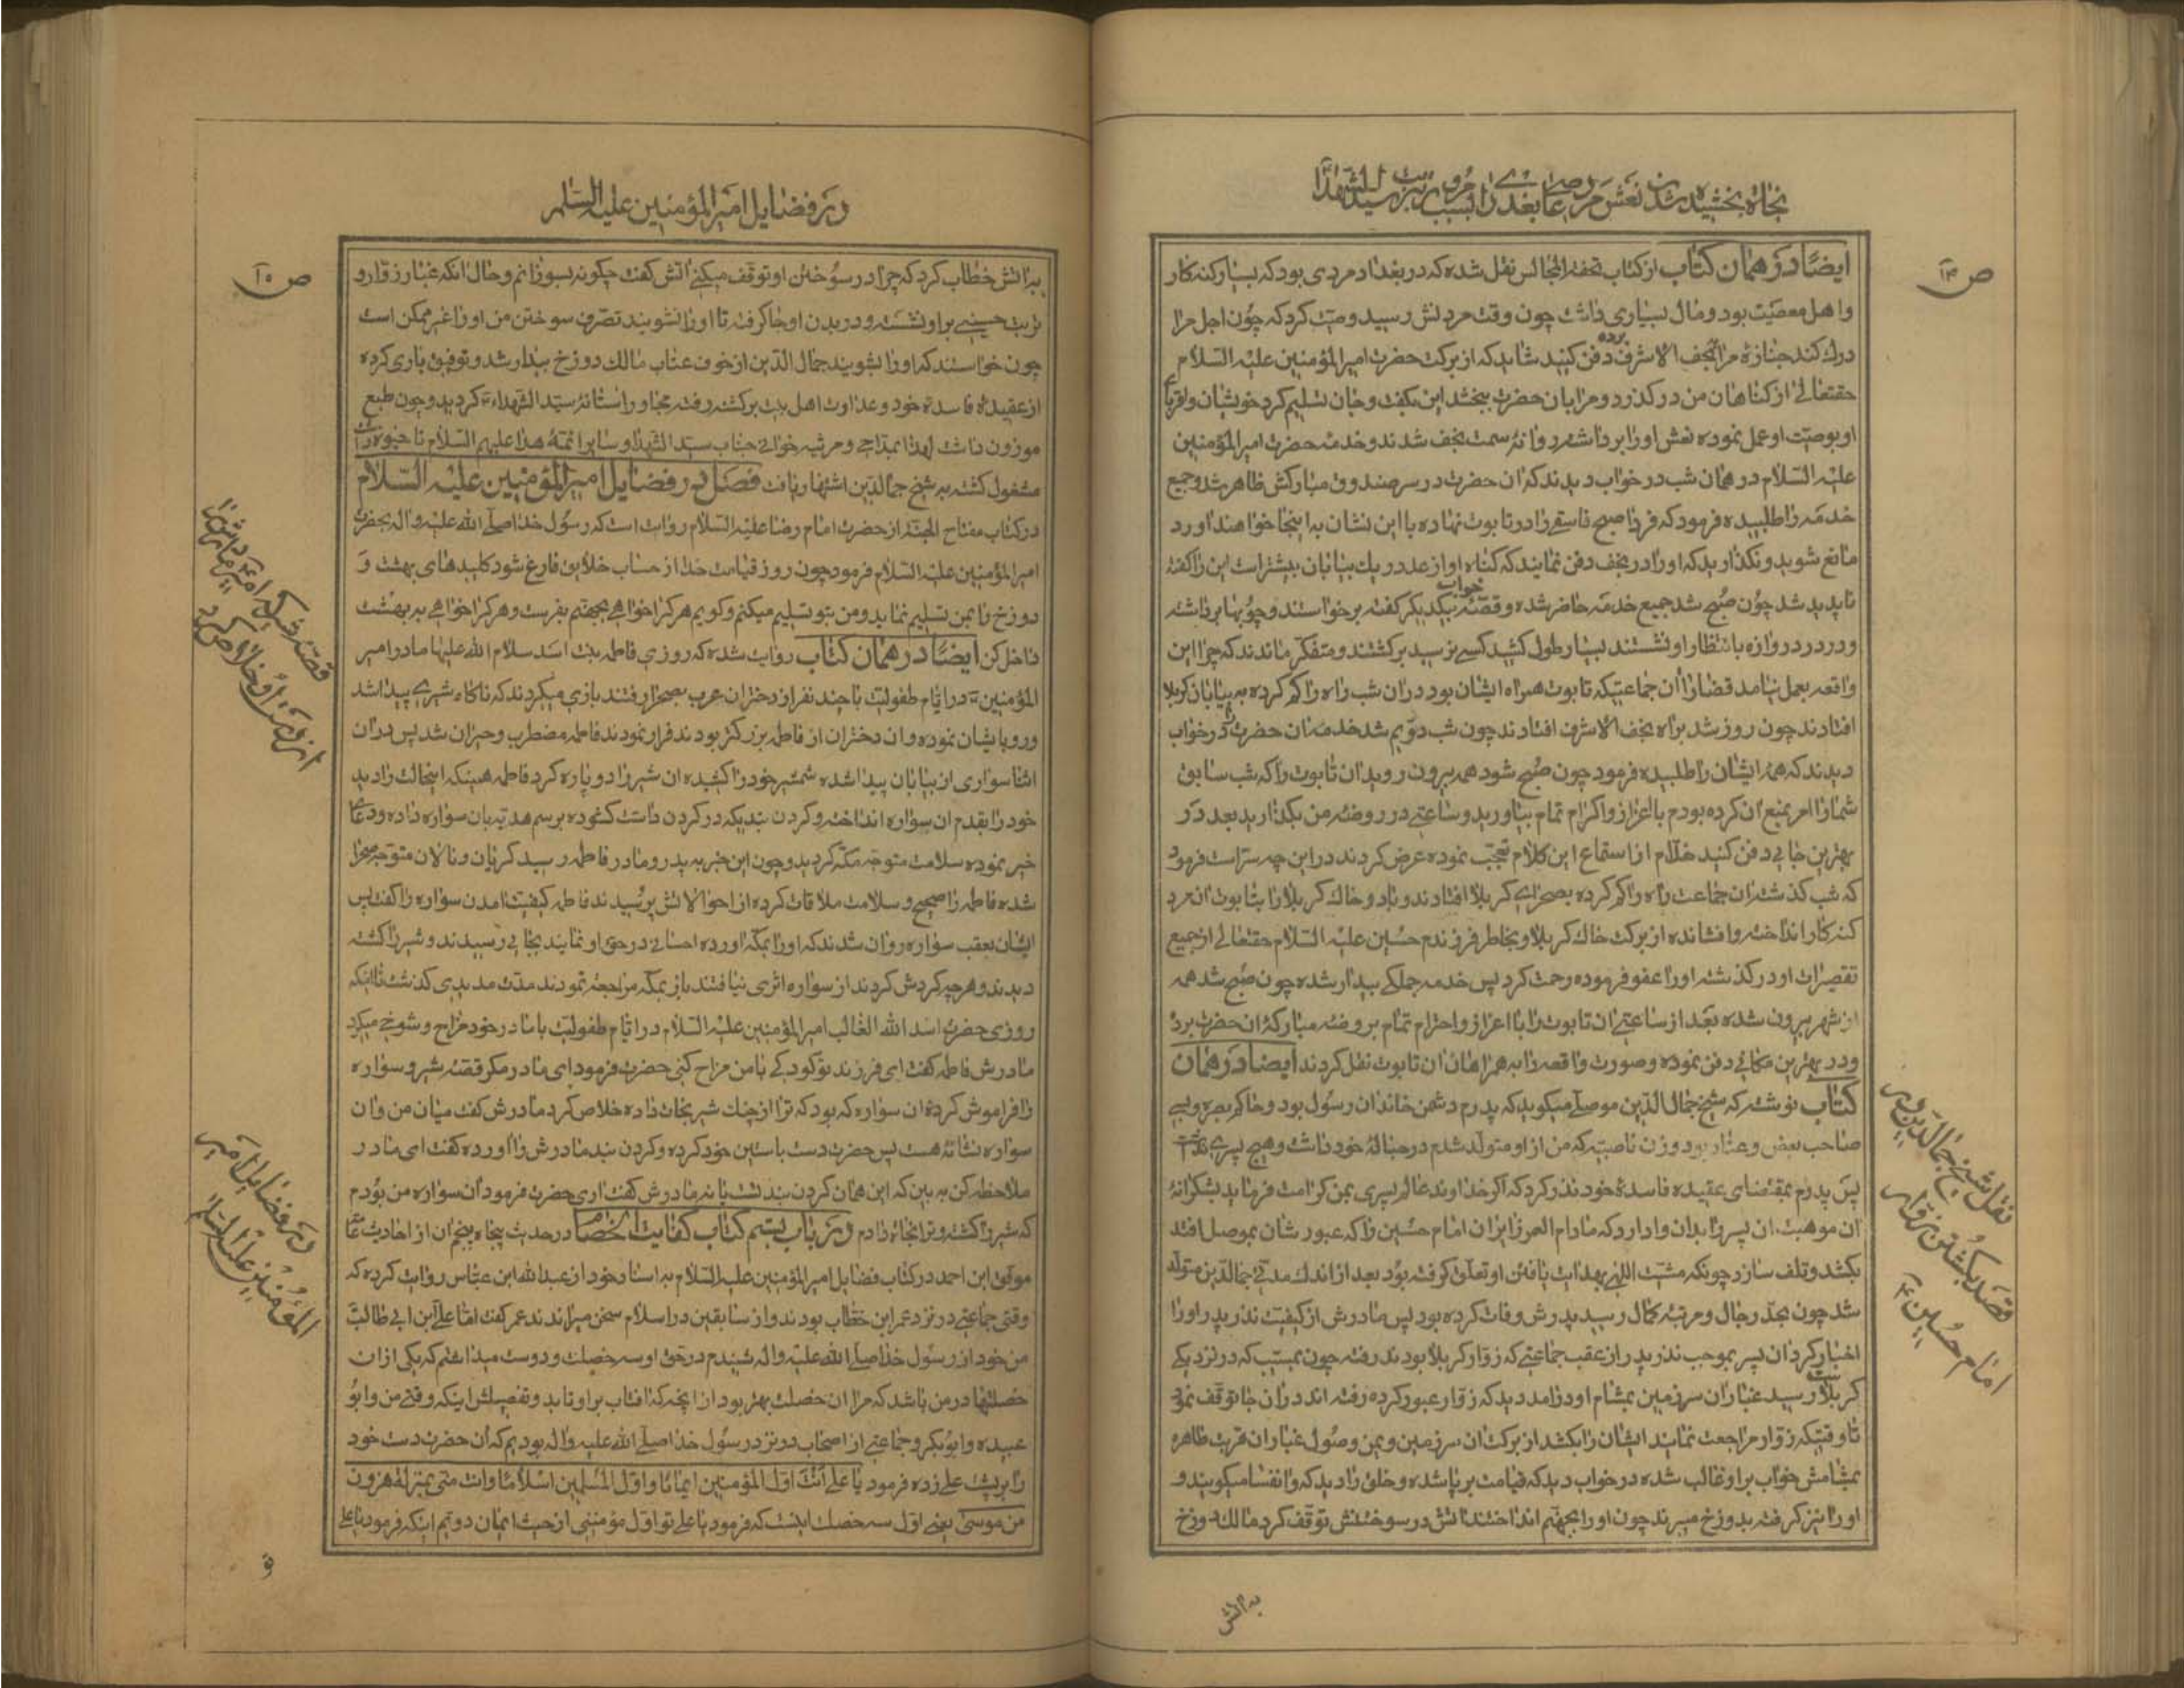 نجاة بخشیده شدن نعش مرد عاصی بغدادی را بسبب تربت سید الشهدا
ص ۱۴
ایضًا در همان کتاب از کتاب تحفة المجالس نقل شده که در بغداد مردی بود که بسیار کنه کار
و اهل معصیت بود و مال بسیاری داشت چون وقت مردنش رسید وصیت کرد که چون اجل مرا
درک کند جنازهٔ مرا بنجف الاشرف برده دفن کنید شاید که از برکت حضرت امیر المؤمنین علیه السلام
حقتعالی از کناهان من درکذرد و مرا بان حضرت ببخشد این بکفت و جان تسلیم کرد خویشان و اقربای
او بوصیت او عمل نموده نعش او را برداشته روانهٔ سمت نجف شدند و خدمهٔ حضرت امیر المؤمنین
علیه السلام در همان شب در خواب دیدند که ان حضرت در سر صندوق مبارکش ظاهر شد و جمیع
خدمه را طلبیده فرمود که فردا صبح فاسقی را در تابوت نهاده با این نشان به اینجا خواهند اورد
مانع شوید و نکذارید که او را در نجف دفن نمایند که کناه او از عدد ریک بیابان بیشتر است این را کفته
ناپدید شد چون صبح شد جمیع خدمه حاضر شده و قصهٔ خواب بیکدیکر کفته برخواستند و چوبها برداشته
و در در دروازه بانتظار او نشستند بسیار طول کشید کسی نرسید برکشتند و متفکر ماندند که چرا این
واقعه بعمل نیامد قضا را ان جماعتیکه تابوت همراه ایشان بود در ان شب راه را کم کرده به بیابان کربلا
افتادند چون روز شد براه نجف الاشرف افتادند چون شب دویم شد خدمه ان حضرت را در خواب
دیدند که همه ایشان را طلبیده فرمود چون صبح شود همه بیرون روید ان تابوت را که شب سابق
شما را امر بمنع ان کرده بودم با اعزاز و اکرام تمام بیاورید و ساعتی در روضهٔ من بکذارید بعد در
بهترین جایی دفن کنید خدّام از استماع این کلام تعجب نموده عرض کردند در این چه سرّ است فرمود
که شب کذشته ان جماعت راه را کم کرده بصحرای کربلا افتادند و باد و خاک کربلا را بتابوت ان مرد
کنه کار انداخته و افشانده از برکت خاک کربلا و بخاطر فرزندم حسین علیه السلام حقتعالی از جمیع
تقصیرات او درکذشته او را عفو فرموده رحمت کرد پس خدمه جملکی بیدار شده چون صبح شد همه
از شهر بیرون شده بعد از ساعتی ان تابوت را با اعزاز و احترام تمام بروضهٔ مبارکهٔ ان حضرت برد
و در بهترین مکانی دفن نموده و صورت واقعه را به همراهان ان تابوت نقل کردند ایضا در همان
کتاب نوشته که شیخ جمال الدین موصلی میکوید که پدرم دشمن خاندان رسول بود و حاکم بصره و بسی
صاحب بغض و عناد بود و زن ناصبیه که من از او متولد شدم در حبالهٔ خود داشت و هیچ پسری نداشت
پس پدرم بمقتضای عقیدهٔ فاسدهٔ خود نذر کرد که اکر خداوند عالم پسری بمن کرامت فرماید بشکرانهٔ
ان موهبت ان پسر را بدان وادارد که مادام العمر زایران امام حسین را که عبورشان بموصل افتد
بکشد و تلف سازد چونکه مشیت اللهی بهدایت یافتن او تعلق کرفته بود بعد از اندک مدتی جمال الدین متولد
شد چون بحد رجال و مرتبه کمال رسید پدرش وفات کرده بود پس مادرش از کیفیت نذر پدر او را
اخبار کرد ان پسر بموجب نذر پدر از عقب جماعتی که زوار کربلا بودند رفته چون بمسیّب که در نزدیکی
کربلاست رسید غبار ان سرزمین بمشام او درامد دید که زوار عبور کرده رفته اند در ان جا توقف نمود
تا وقتیکه زوار مراجعت نمایند ایشان را بکشد از برکت ان سرزمین و یمن وصول غبار ان تربت طاهره
بمشامش خواب بر او غالب شده در خواب دید که قیامت برپا شده و خلق را دید که وانفسا میکویند و
او را نیز کرفته بدوزخ میبرند چون او را بجهنم انداختند اتش در سوختنش توقف کرد مالک دوزخ
نقل شیخ جمال الدین موصلی
قصد بکشتن زوار
امام حسین ع
به اتش
در فضایل امیر المؤمنین علیه السلام
ص ۱۵
به اتش خطاب کرد که چرا در سوختن او توقف میکنی اتش کفت چکونه بسوزانم و حال انکه غبار زوار و
تربت حسینی بر او نشسته و در بدن او جا کرفته تا او را نشویند تصرف سوختن من او را غیر ممکن است
چون خواستند که او را بشویند جمال الدین از خوف عتاب مالک دوزخ بیدار شد و توفیق یاری کرده
از عقیدهٔ فاسدهٔ خود و عداوت اهل بیت برکشته رفته مجاور استانهٔ سید الشهداء ع کردید و چون طبع
موزون داشت لهذا بمدّاحی و مرثیه خوانی جناب سید الشهدا و سایر ائمهٔ هدا علیهم السلام تا حیوه داشت
مشغول کشته به شیخ جمال الدین اشتهار یافت فصل در فضایل امیر المؤمنین علیه السلام
در کتاب مفتاح الجنة از حضرت امام رضا علیه السلام روایت است که رسول خدا صلی الله علیه و اله بحضرت
امیر المؤمنین علیه السلام فرمود چون روز قیامت خدا از حساب خلایق فارغ شود کلیدهای بهشت و
دوزخ را بمن تسلیم نماید و من بتو تسلیم میکنم و کویم هر کرا خواهی بجهنم بفرست و هر کرا خواهی به بهشت
داخل کن ایضًا در همان کتاب روایت شده که روزی فاطمه بنت اسد سلام الله علیها مادر امیر
المؤمنین ع در ایّام طفولیت با چند نفر از دختران عرب بصحرا رفتند بازی میکردند که ناکاه شیری پیدا شد
و رو بایشان نموده و ان دختران از فاطمه بزرکتر بودند فرار نمودند فاطمه مضطرب و حیران شد پس در ان
اثنا سواری از بیابان پیدا شده شمشیر خود را کشیده ان شیر را دو پاره کرد فاطمه همینکه اینحالت را دید
خود را بقدم ان سواره انداخته و کردن بندیکه در کردن داشت کشوده برسم هدیه بان سواره داده و دعای
خیر نموده سلامت متوجه مکّه کردید و چون این خبر به پدر و مادر فاطمه رسید کریان و نالان متوجه صحرا
شده فاطمه را صحیح و سلامت ملاقات کرده از احوالاتش پرسیدند فاطمه کیفیت امدن سواره را کفت پس
ایشان بعقب سواره روان شدند که او را بمکّه اورده احسانی در حق او نمایند بجایی رسیدند و شیر را کشته
دیدند و هر چه کردش کردند از سواره اثری نیافتند باز بمکّه مراجعه نمودند مدت مدیدی کذشت تا اینکه
روزی حضرت اسد الله الغالب امیر المؤمنین علیه السلام در ایّام طفولیت با مادر خود مزاح و شوخی میکرد
مادرش فاطمه کفت ای فرزند تو کودکی با من مزاح کنی حضرت فرمود ای مادر مکر قصّه شیر و سواره
را فراموش کردهٔ ان سواره که بود که ترا از چنک شیر نجات داده خلاص کرد مادرش کفت میان من و ان
سواره نشانهٔ هست پس حضرت دست باستین خود کرده و کردن بند مادرش را اورده کفت ای مادر
ملاحظه کن به بین که این همان کردن بند تست یا نه مادرش کفت اری حضرت فرمود ان سواره من بودم
که شیر را کشته و ترا نجات دادم و در باب بیستم کتاب کفایت الخصام در حدیث پنجاه پنجم ان از احادیث عامه
موفق ابن احمد در کتاب فضایل امیر المؤمنین علیه السلام به اسناد خود از عبد الله ابن عباس روایت کرده که
وقتی جماعتی در نزد عمر ابن خطاب بودند و از سابقین در اسلام سخن میراندند عمر کفت امّا علی ابن ابی طالب
من خود از رسول خدا صلی الله علیه و اله شنیدم در حق او سه خصلت و دوست میداشتم که یکی از ان
خصلتها در من باشد که مرا ان خصلت بهتر بود از انچه که افتاب بر او تابد و تفصیلش اینکه وقتی من و ابو
عبیده و ابو بکر و جماعتی از اصحاب در نزد رسول خدا صلی الله علیه و اله بودیم که ان حضرت دست خود
را بر پشت علی زده فرمود یا علی انت اول المؤمنین ایمانا و اول المسلمین اسلاما و انت منی بمنزلة هرون
من موسی یعنی اوّل سه خصلت اینست که فرمود یا علی تو اوّل مؤمنینی از حیث ایمان دویم اینکه فرمود یا علی
در فضایل امیر
المؤمنین علیه السلام
تو